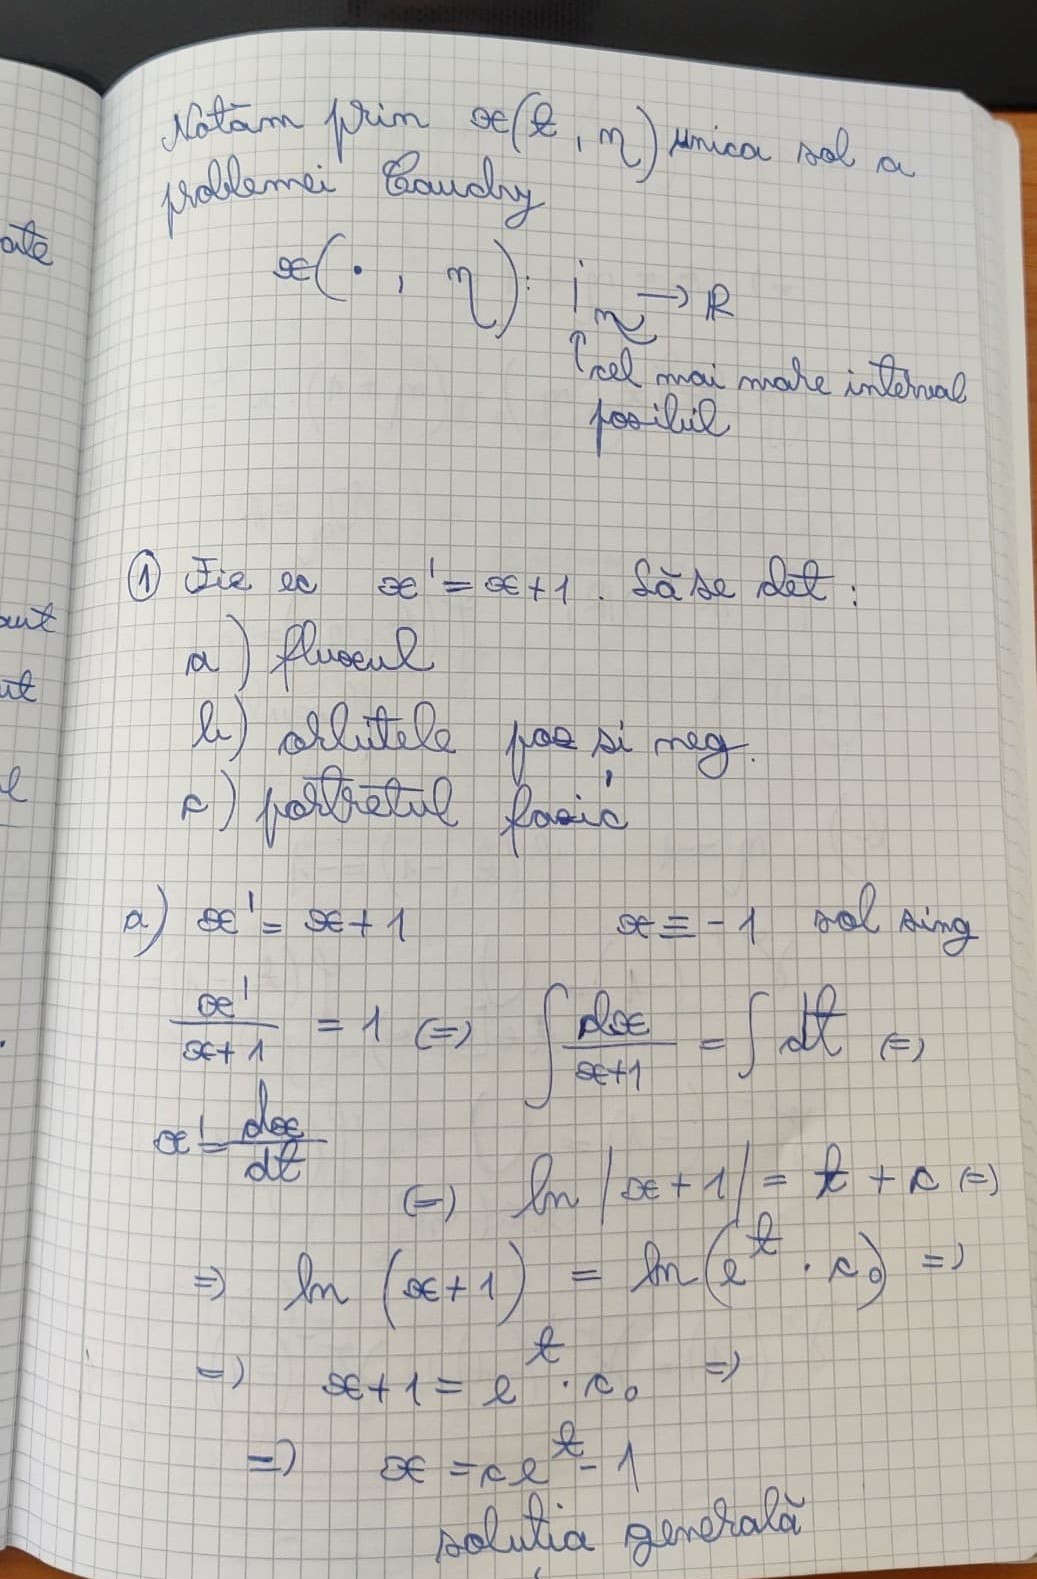 Notăm prin x(t, η) unica sol a
problemei Cauchy
x(·, η): I_η → R
↑ cel mai mare interval
posibil
① Fie ec x' = x+1. Să se det:
a) fluxul
b) orbitele poz și neg.
c) portretul fazic
a) x' = x+1 x ≡ -1 sol sing
x'/(x+1) = 1 (=) ∫ dx/(x+1) = ∫ dt (=)
x' = dx/dt
(=) ln |x+1| = t + c (=)
=) ln (x+1) = ln(e^t · c₀) =)
=) x+1 = e^t · c₀ =)
=) x = ce^t - 1
soluția generală
ate
out
ut
l